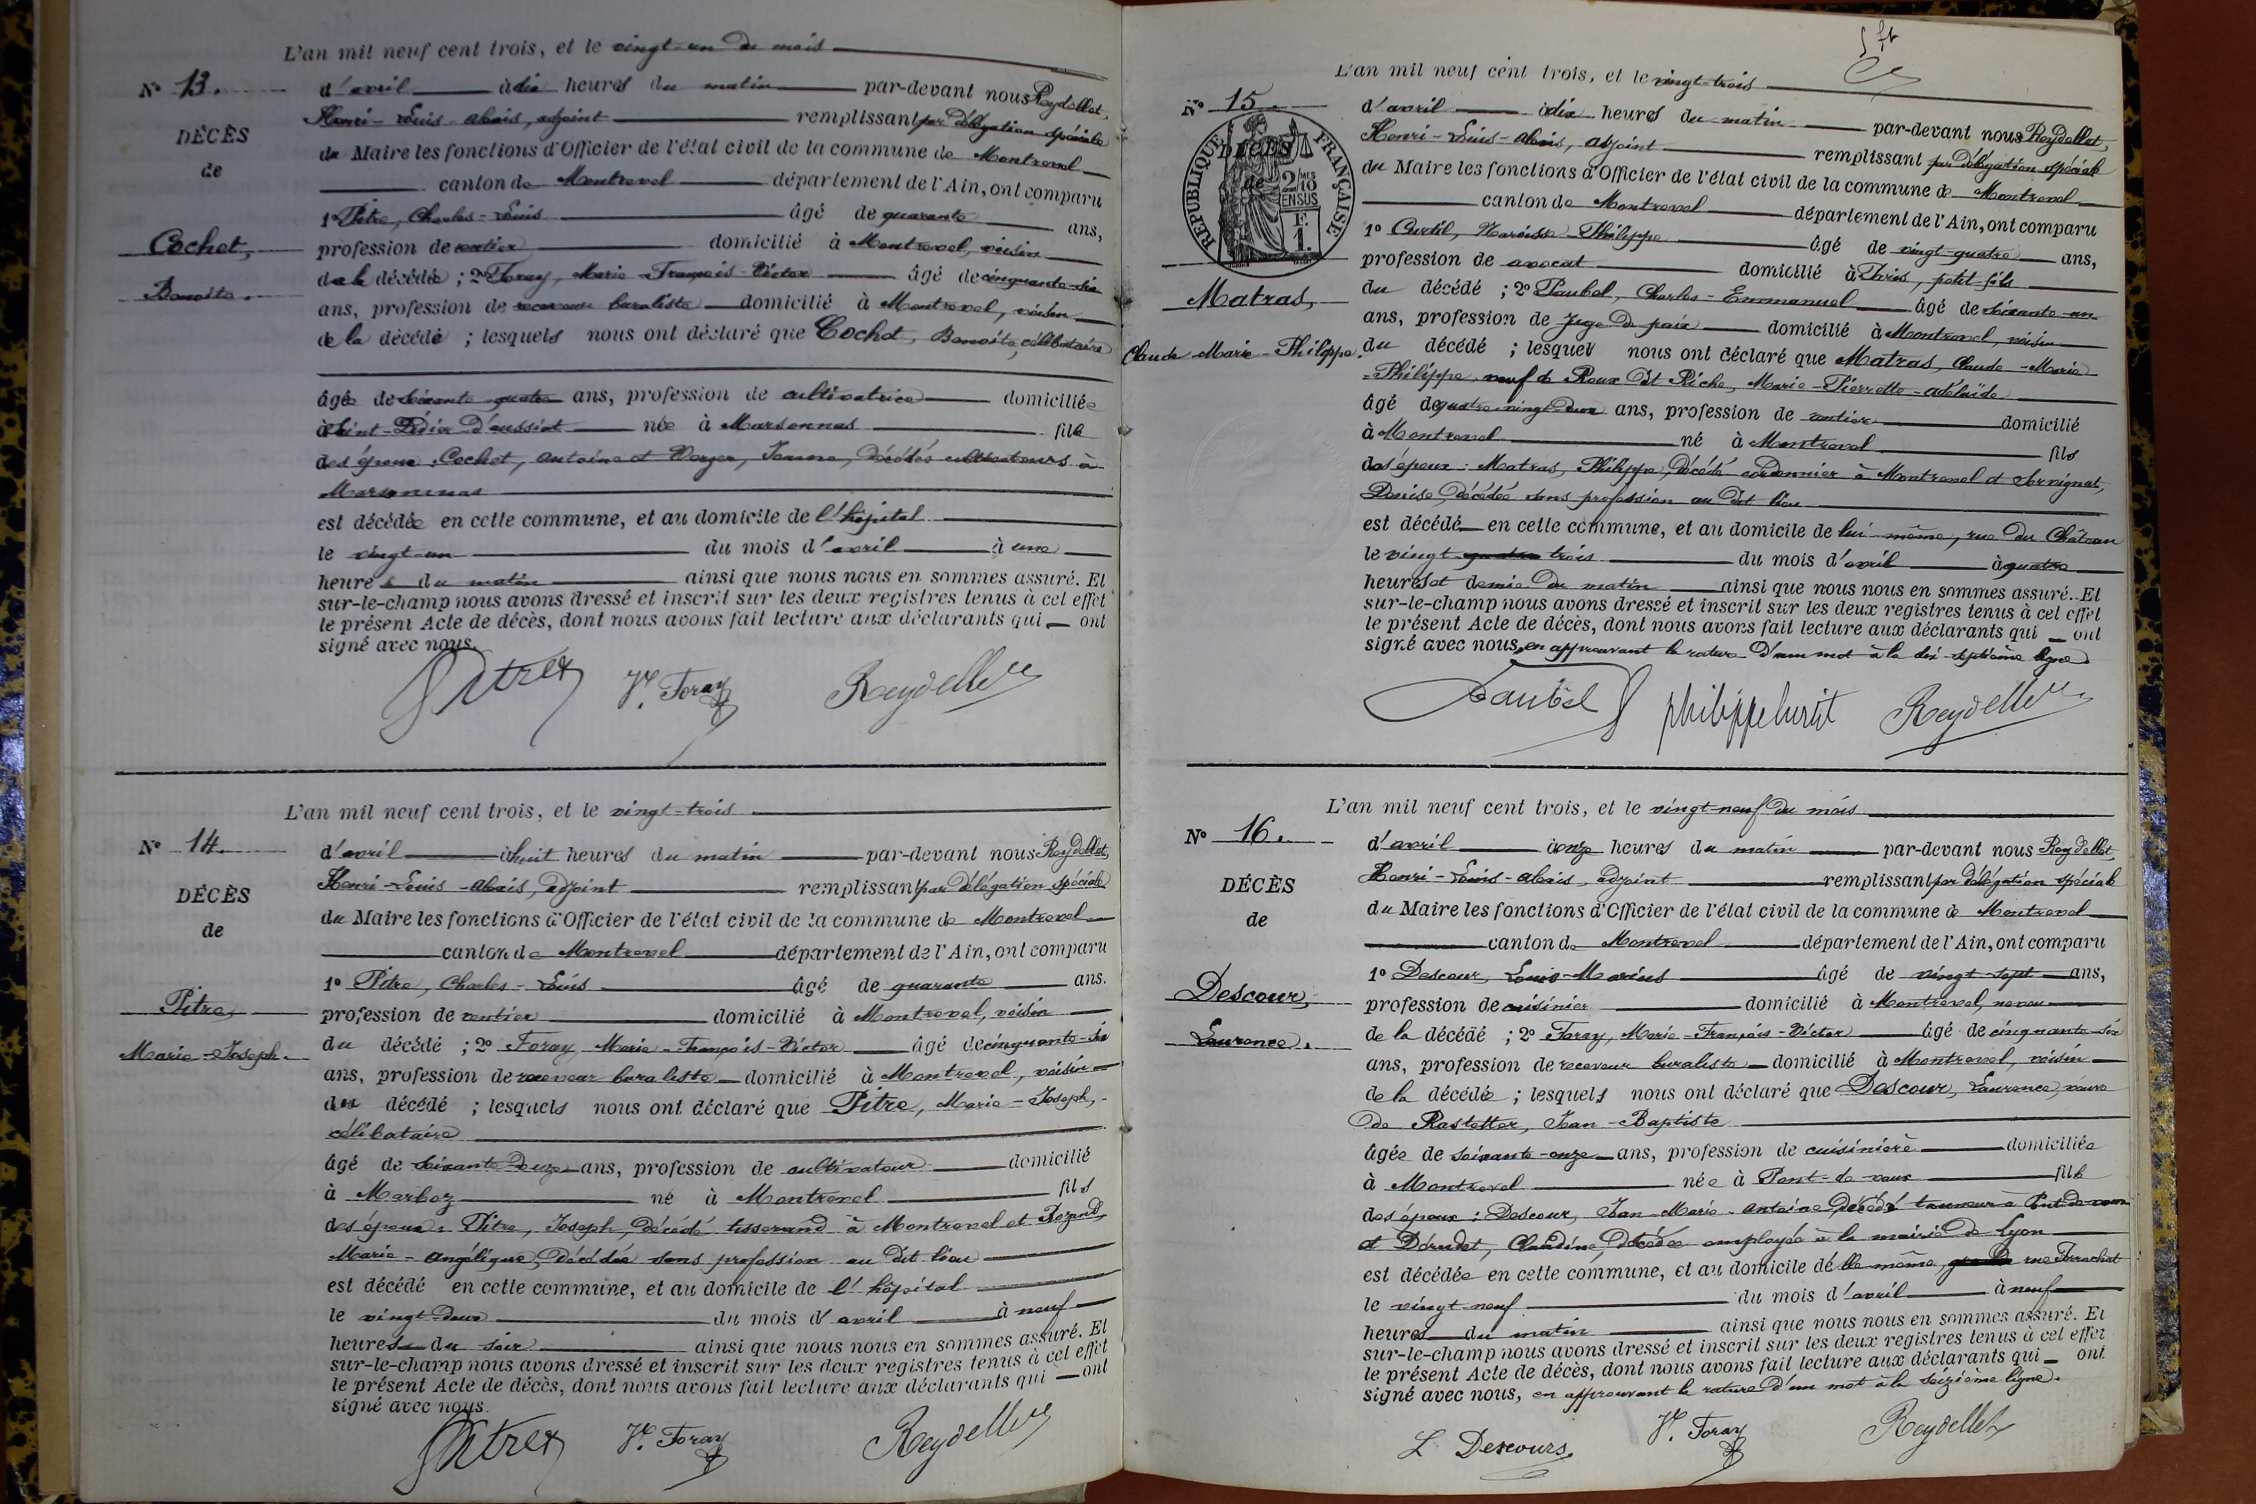 L'an mil neuf cent trois, et le vingt-un du mois
N° 13.
d'avril à dix heures du matin par-devant nous Reydellet,
Henri-Louis-Alexis, adjoint remplissant par délégation spéciale
DÉCÈS
du Maire les fonctions d'Officier de l'état civil de la commune de Montrevel
de
canton de Montrevel département de l'Ain, ont comparu
1° Pitre, Charles-Louis âgé de quarante ans,
Cochet,
profession de rentier domicilié à Montrevel, voisin
de la décédée ; 2° Foray, Marie-François-Victor âgé de cinquante-six
Benoîte.
ans, profession de receveur buraliste domicilié à Montrevel, voisin
de la décédée ; lesquels nous ont déclaré que Cochet, Benoîte, célibataire
âgée de soixante quatre ans, profession de cultivatrice domiciliée
à Saint-Didier d'Aussiat née à Marsonnas fille
des époux : Cochet, Antoine et Verger, Jeanne, décédés cultivateurs à
Marsonnas
est décédée en cette commune, et au domicile de l'hôpital
le vingt-un du mois d'avril à une
heure du matin ainsi que nous nous en sommes assuré. Et
sur-le-champ nous avons dressé et inscrit sur les deux registres tenus à cet effet
le présent Acte de décès, dont nous avons fait lecture aux déclarants qui ont
signé avec nous.
Pitre Vr. Foray Reydellet
L'an mil neuf cent trois, et le vingt-trois
N° 14.
d'avril à huit heures du matin par-devant nous Reydellet,
Henri-Louis-Alexis, adjoint remplissant par délégation spéciale
DÉCÈS
du Maire les fonctions d'Officier de l'état civil de la commune de Montrevel
de
canton de Montrevel département de l'Ain, ont comparu
1° Pitre, Charles-Louis âgé de quarante ans.
Pitre,
profession de rentier domicilié à Montrevel, voisin
Marie-Joseph.
du décédé ; 2° Foray, Marie-François-Victor âgé de cinquante-six
ans, profession de receveur buraliste domicilié à Montrevel, voisin
du décédé ; lesquels nous ont déclaré que Pitre, Marie-Joseph,
célibataire
âgé de soixante-douze ans, profession de cultivateur domicilié
à Marboz né à Montrevel fils
des époux : Pitre, Joseph, décédé tisserand à Montrevel et
Marie-Angélique, décédée sans profession au dit lieu
est décédé en cette commune, et au domicile de l'hôpital
le vingt-deux du mois d'avril à neuf
heures du soir ainsi que nous nous en sommes assuré. Et
sur-le-champ nous avons dressé et inscrit sur les deux registres tenus à cet effet
le présent Acte de décès, dont nous avons fait lecture aux déclarants qui ont
signé avec nous.
Pitre Vr. Foray Reydellet
L'an mil neuf cent trois, et le vingt-trois
N° 15.
d'avril à dix heures du matin par-devant nous Reydellet,
Henri-Louis-Alexis, adjoint remplissant par délégation spéciale
RÉPUBLIQUE FRANÇAISE
DÉCÈS
de
2/10 MES
EN SUS
F.
1.
du Maire les fonctions d'Officier de l'état civil de la commune de Montrevel
canton de Montrevel département de l'Ain, ont comparu
1° Curtil, Narcisse-Philippe âgé de vingt-quatre ans,
profession de avocat domicilié à Paris, petit-fils
Matras,
du décédé ; 2° Paubel, Charles-Emmanuel âgé de soixante-un
ans, profession de juge de paix domicilié à Montrevel, voisin
Claude-Marie-Philippe.
du décédé ; lesquels nous ont déclaré que Matras, Claude-Marie
-Philippe, veuf de Roux dit Riche, Marie-Pierrette-Adélaïde
âgé de quatre-vingt-deux ans, profession de rentier domicilié
à Montrevel né à Montrevel fils
des époux : Matras, Philippe, décédé cordonnier à Montrevel et Servignat,
Denise, décédée sans profession au dit lieu
est décédé en cette commune, et au domicile de lui-même, rue du Château
le vingt-quatre trois du mois d'avril à quatre
heures et demie du matin ainsi que nous nous en sommes assuré. Et
sur-le-champ nous avons dressé et inscrit sur les deux registres tenus à cet effet
le présent Acte de décès, dont nous avons fait lecture aux déclarants qui ont
signé avec nous, en approuvant la rature d'un mot à la dix-septième ligne.
Paubel philippe curtil Reydellet
L'an mil neuf cent trois, et le vingt-neuf du mois
N° 16.
d'avril à onze heures du matin par-devant nous Reydellet,
Henri-Louis-Alexis, adjoint remplissant par délégation spéciale
DÉCÈS
du Maire les fonctions d'Officier de l'état civil de la commune de Montrevel
de
canton de Montrevel département de l'Ain, ont comparu
1° Descour, Louis-Marius âgé de vingt-sept ans,
Descour,
profession de cuisinier domicilié à Montrevel, neveu
Laurence.
de la décédée ; 2° Foray, Marie-François-Victor âgé de cinquante-six
ans, profession de receveur buraliste domicilié à Montrevel, voisin
de la décédée ; lesquels nous ont déclaré que Descour, Laurence, veuve
de Rastetter, Jean-Baptiste
âgée de soixante-onze ans, profession de cuisinière domiciliée
à Montrevel née à Pont-de-vaux fille
des époux : Descour, Jean-Marie-Antoine, décédé tanneur à Pont-de-vaux
et Claudine, décédée employée à la mairie de Lyon
est décédée en cette commune, et au domicile d'elle-même, rue Ferrachat
le vingt-neuf du mois d'avril à neuf
heures du matin ainsi que nous nous en sommes assuré. Et
sur-le-champ nous avons dressé et inscrit sur les deux registres tenus à cet effet
le présent Acte de décès, dont nous avons fait lecture aux déclarants qui ont
signé avec nous, en approuvant la rature d'un mot à la seizième ligne.
L Descours Vr. Foray Reydellet